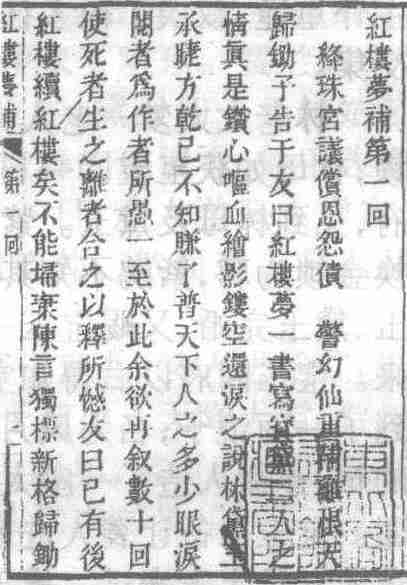 紅樓夢補第一回
絳珠宮議償恩怨債 警幻仙重補離恨天
歸鋤子告于友曰紅樓夢一書寫寳黛二人之
情眞是鑽心嘔血繪影鏤空還淚之說林黛玉
承睫方乾已不知賺了普天下人之多少眼淚
閱者爲作者所愚一至於此余欲再叙數十回
使死者生之離者合之以釋所憾友曰已有後
紅樓續紅樓矣不能埽棄陳言獨標新格歸鋤
紅樓夢補 第一回